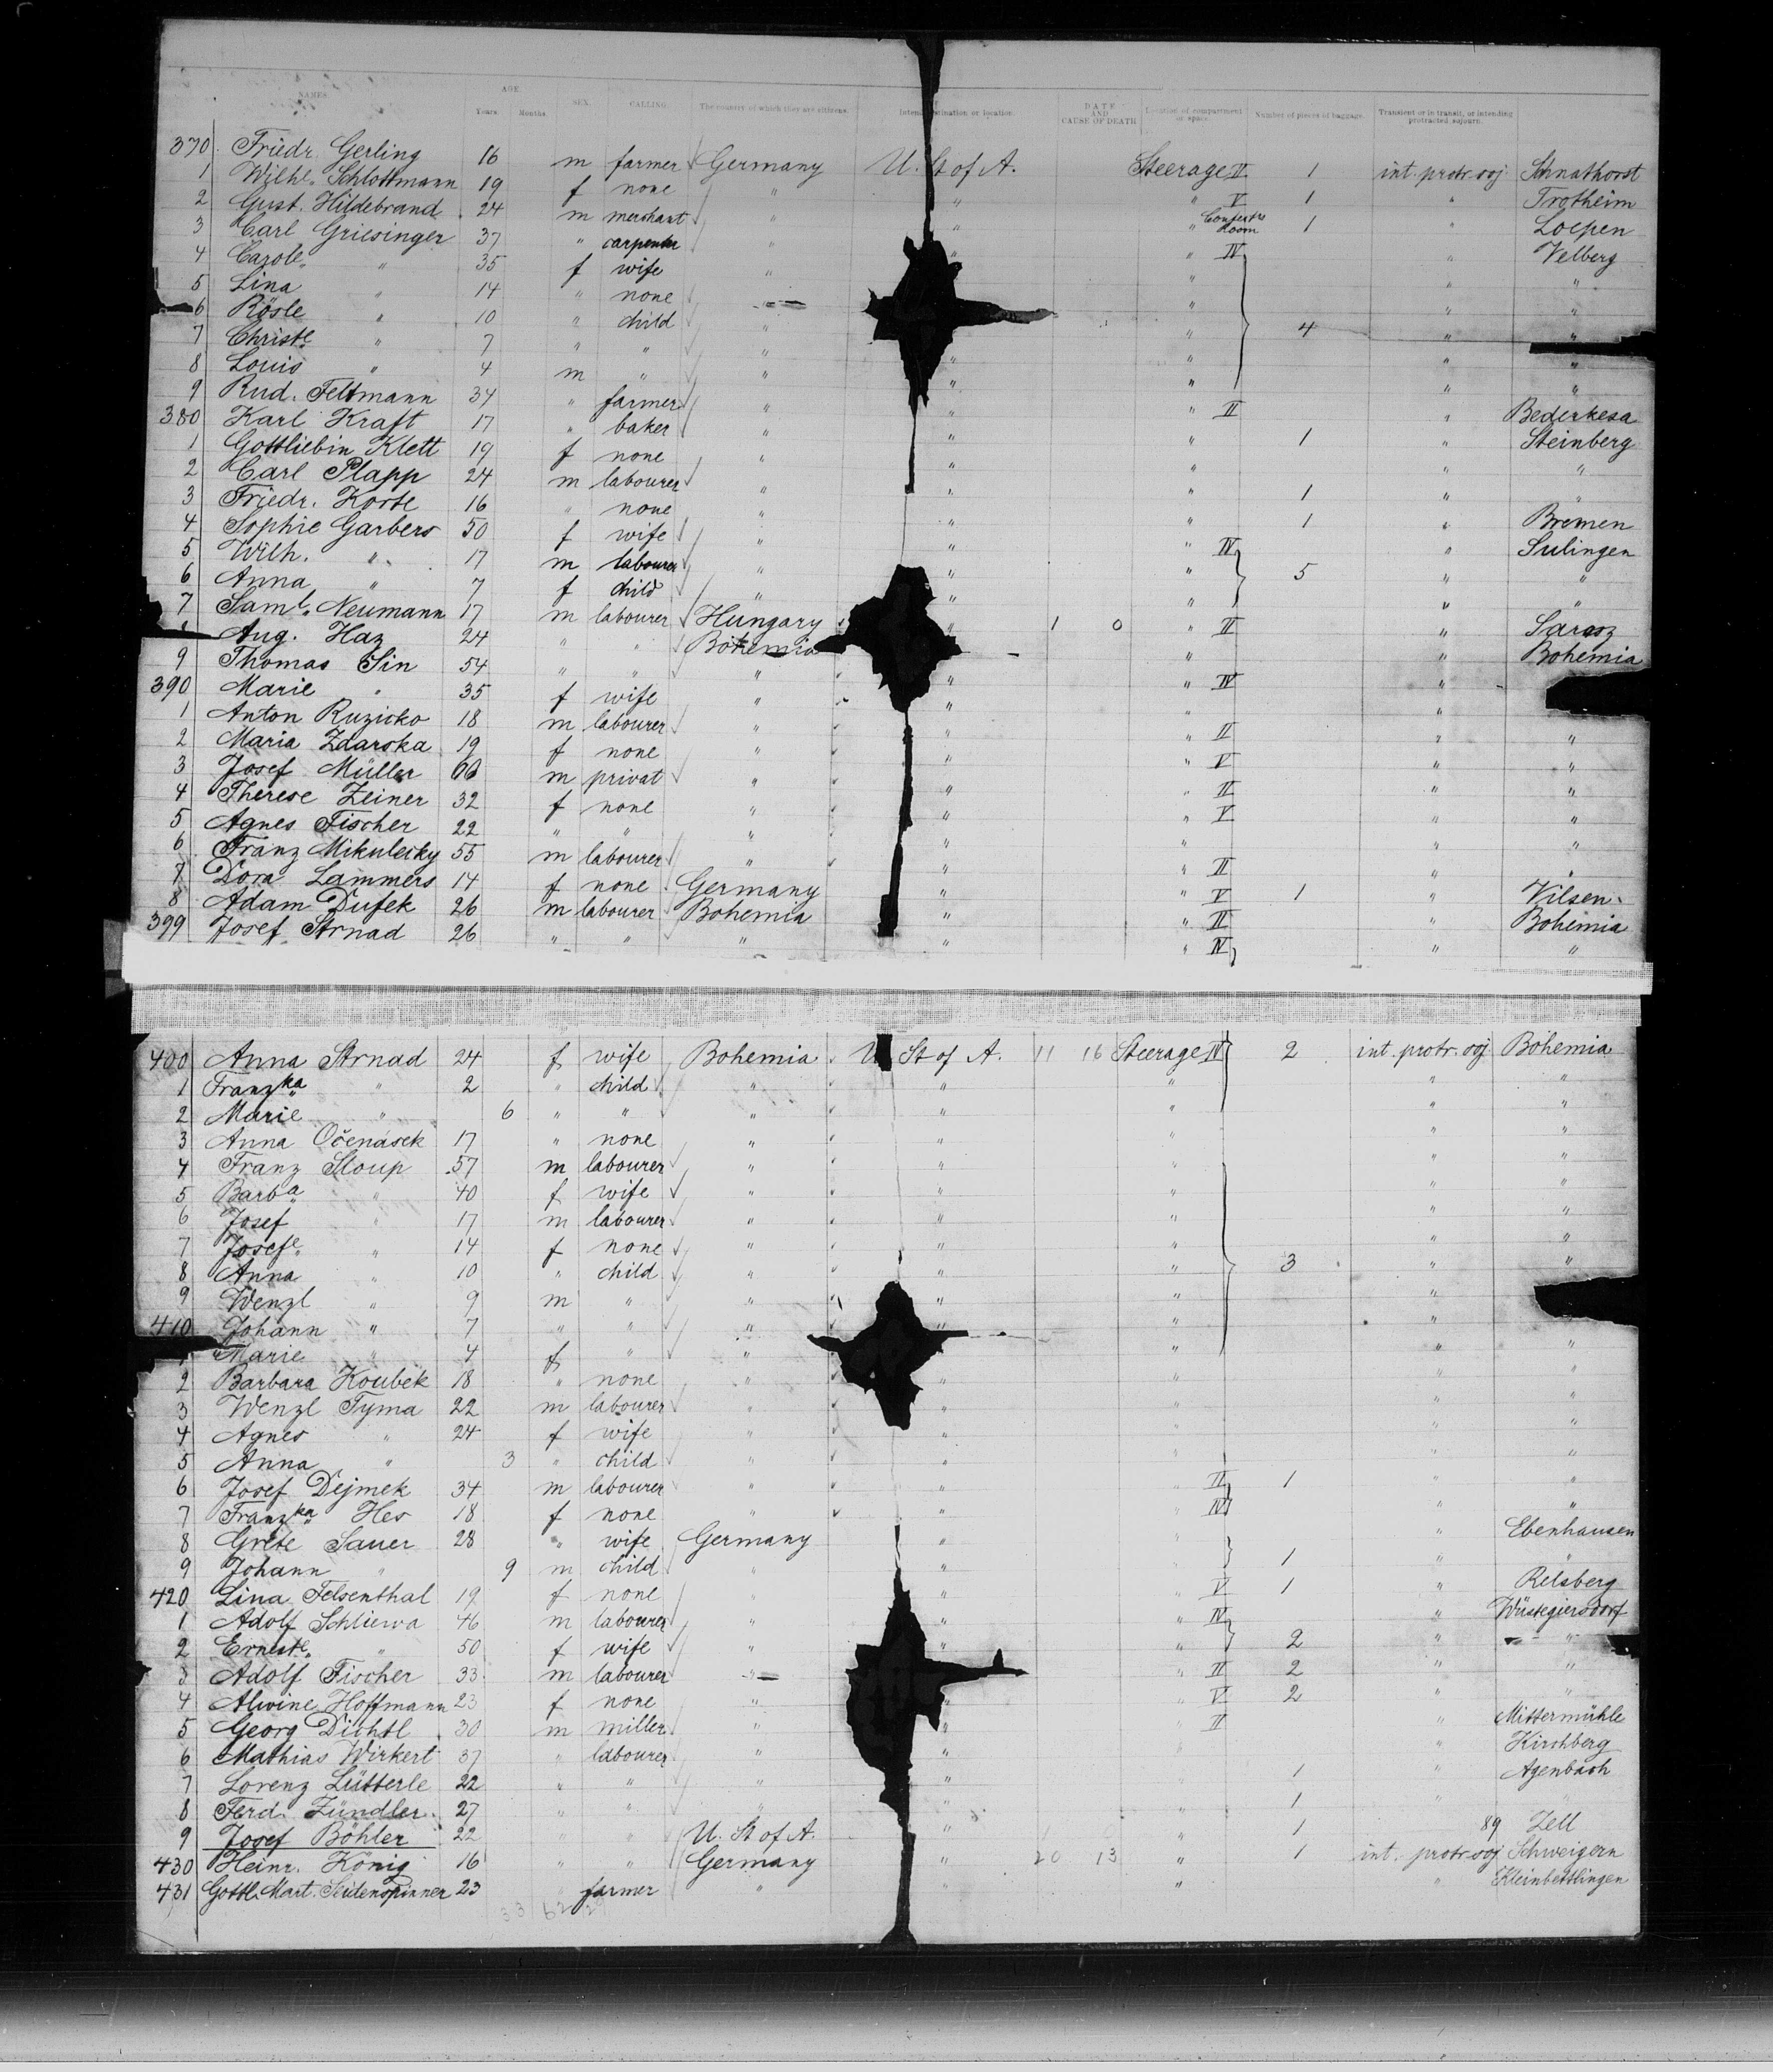 NAMES. AGE. Years. Months. SEX. CALLING. The country of which they are citizens. Intended destination or location. DATE AND CAUSE OF DEATH Location of compartment or space. Number of pieces of baggage. Transient or in transit, or intending protracted sojourn.
370 Friedr. Gerling 16 m farmer Germany U. St of A. Steerage II 1 int. protr. soj. Schnathorst
1 Wilhe. Schlottmann 19 f none " " " V 1 " Frotheim
2 Gust. Hildebrand 24 m merchant " " " Room 1 " Loepen
3 Carl Griesinger 37 " carpenter " " " IV " Velberg
4 Carole. " 35 f wife " " " "
5 Lina " 14 " none " " " "
6 Rösle " 10 " child " " 4 " "
7 Christe " 7 " " " " " " "
8 Louis " 4 m " " " " " "
9 Rud. Feltmann 34 " farmer " " " II " Bederkesa
380 Karl Kraft 17 " baker " " " 1 " Steinberg
1 Gottliebin Klett 19 f none " " " " "
2 Carl Plapp 24 m labourer " " " 1 " "
3 Friedr. Korte 16 " none " " " 1 " Bremen
4 Sophie Garbers 50 f wife " " " IV " Sulingen
5 Wilh. " 17 m labourer " " " 5 " "
6 Anna " 7 f child " " " " "
7 Saml. Neumann 17 m labourer Hungary " 1 0 " II "
Aug. Haz 24 " " Bohemia " " Bohemia
9 Thomas Sin 54 " " " " " IV "
390 Marie " 35 f wife " " " "
1 Anton Ruzicko 18 m labourer " " " II " "
2 Maria Zdarska 19 f none " " " V " "
3 Josef Müller 60 m privat " " " II " "
4 Therese Zeiner 32 f none " " " V " "
5 Agnes Fischer 22 " " " " " " "
6 Franz Mikulecky 55 m labourer " " " II " "
7 Dora Lammers 14 f none Germany " " V 1 " Vilsen
8 Adam Dufek 26 m labourer Bohemia " " II " Bohemia
399 Josef Strnad 26 " " " " " IV " "
400 Anna Strnad 24 f wife Bohemia U St of A. 11 16 Steerage IV 2 int. protr. soj. Bohemia
1 Franzka " 2 " child " " " " "
2 Marie " 6 " " " " " " "
3 Anna Očenásek 17 " none " " " " "
4 Franz Stoup 57 m labourer " " " " "
5 Barba " 40 f wife " " " " "
6 Josef " 17 m labourer " " " " "
7 Josefe " 14 f none " " " " "
8 Anna " 10 " child " " " 3 " "
9 Wenzl " 9 m " " " " "
410 Johann " 7 " " " " " "
Marie " 4 f " " " " "
2 Barbara Koubek 18 " none " " " "
3 Wenzl Tyma 22 m labourer " " " " "
4 Agnes " 24 f wife " " " " "
5 Anna " 3 " child " " " " "
6 Josef Dejmek 34 m labourer " " " II 1 " "
7 Franzka Hes 18 f none " " " IV " "
8 Grete Sauer 28 " wife Germany " " " Ebenhausen
9 Johann " 9 m child " " 1 " "
420 Lina Felsenthal 19 f none " " V 1 " Relsberg
1 Adolf Schliewa 46 m labourer " " " IV " Wüstegiersdorf
2 Erneste. " 50 f wife " " " 2 " "
3 Adolf Fischer 33 m labourer " " II 2 " "
4 Alwine Hoffmann 23 f none " " " V 2 " "
5 Georg Dichtl 30 m miller " " " II " Mittermühle
6 Mathias Wirkert 37 " labourer " " " Kirchberg
7 Lorenz Lütterle 22 " " " " 1 " Agenbach
8 Ferd. Zündler 27 " " " " " 1
9 Josef Böhler 22 " " U. St of A. " " 1 89 Zell
430 Heinr. König 16 " " Germany " 20 13 " 1 int. protr. soj. Schweigern
431 Gottl. Mart. Seidenspinner 23 " farmer " " " Kleinbettlingen